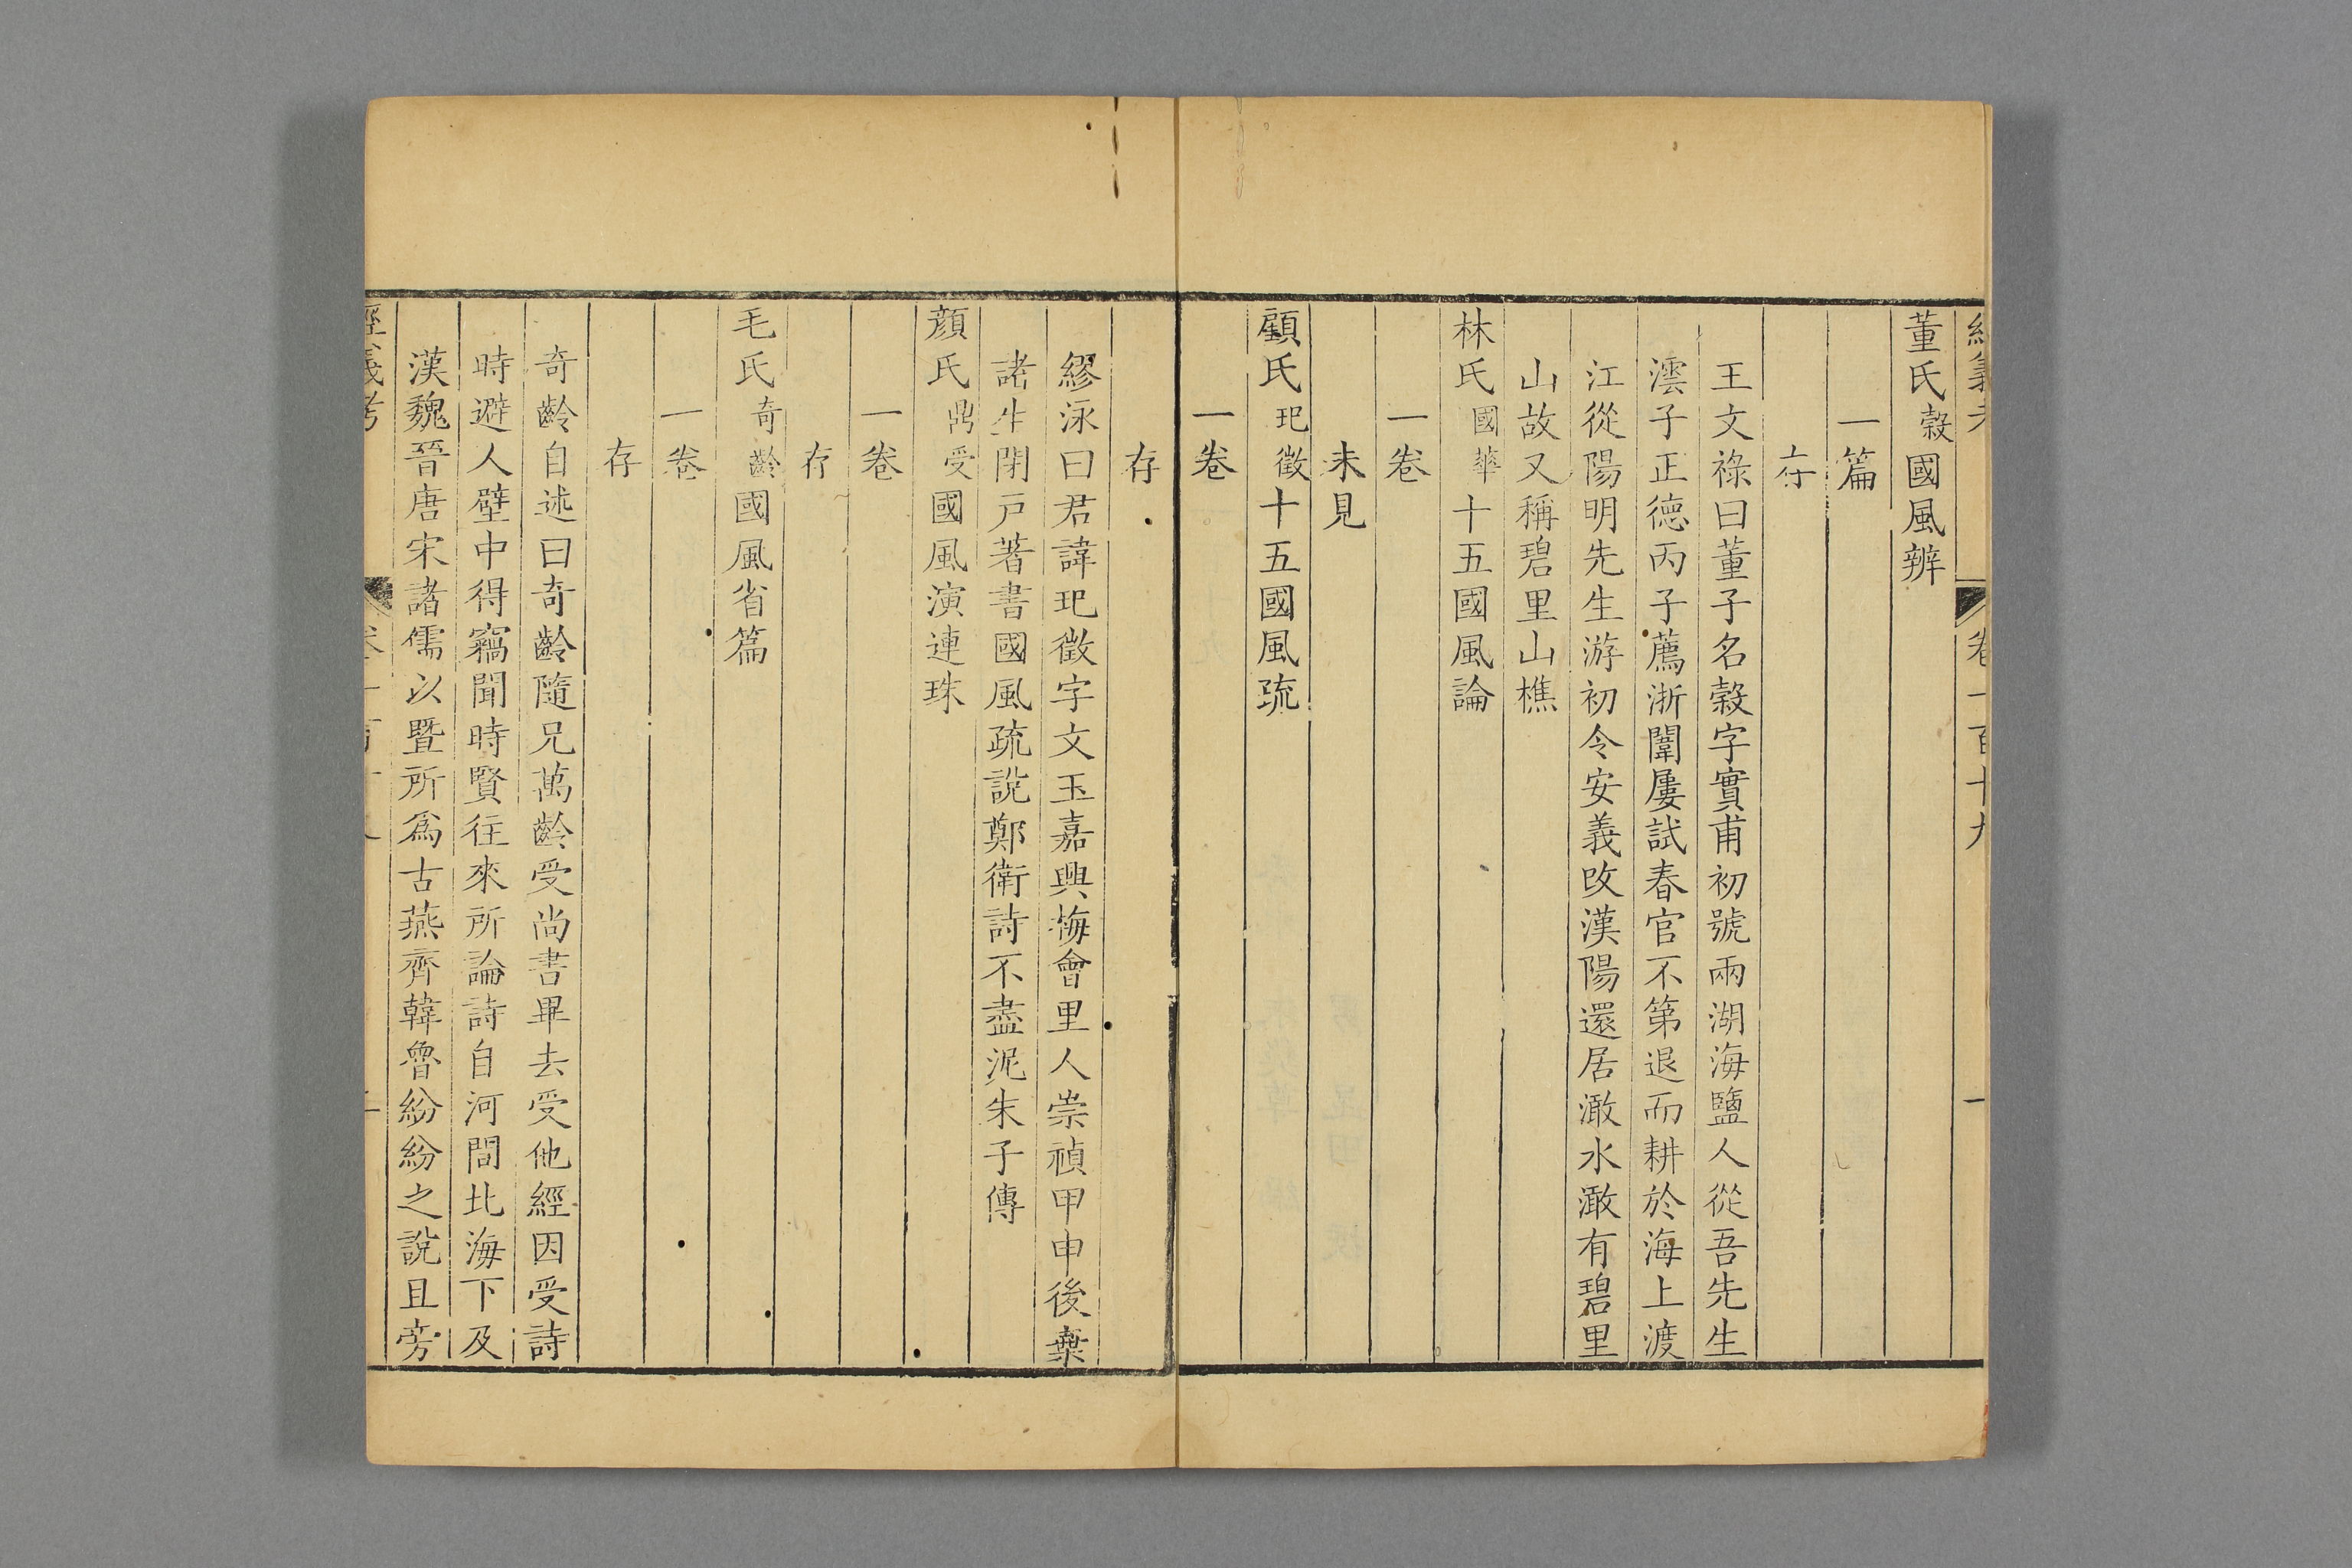 經義考
卷一百十九
一
董氏穀國風辨
一篇
存
王文祿曰董子名穀字實甫初號兩湖海鹽人從吾先生
澐子正德丙子薦浙闈屢試春官不第退而耕於海上渡
江從陽明先生游初令安義改漢陽還居澉水澉有碧里
山故又稱碧里山樵
林氏國華十五國風論
一卷
未見
顧氏玘徵十五國風疏
一卷
存
繆泳曰君諱玘徵字文玉嘉興梅會里人崇禎甲申後棄
諸生閉戶著書國風疏說鄭衛詩不盡泥朱子傳
顏氏鼎受國風演連珠
一卷
存
毛氏奇齡國風省篇
一卷
存
奇齡自述曰奇齡隨兄萬齡受尚書畢去受他經因受詩
時避人壁中得竊聞時賢往來所論詩自河間北海下及
漢魏晉唐宋諸儒以暨所爲古燕齊韓魯紛紛之說且旁
經義考